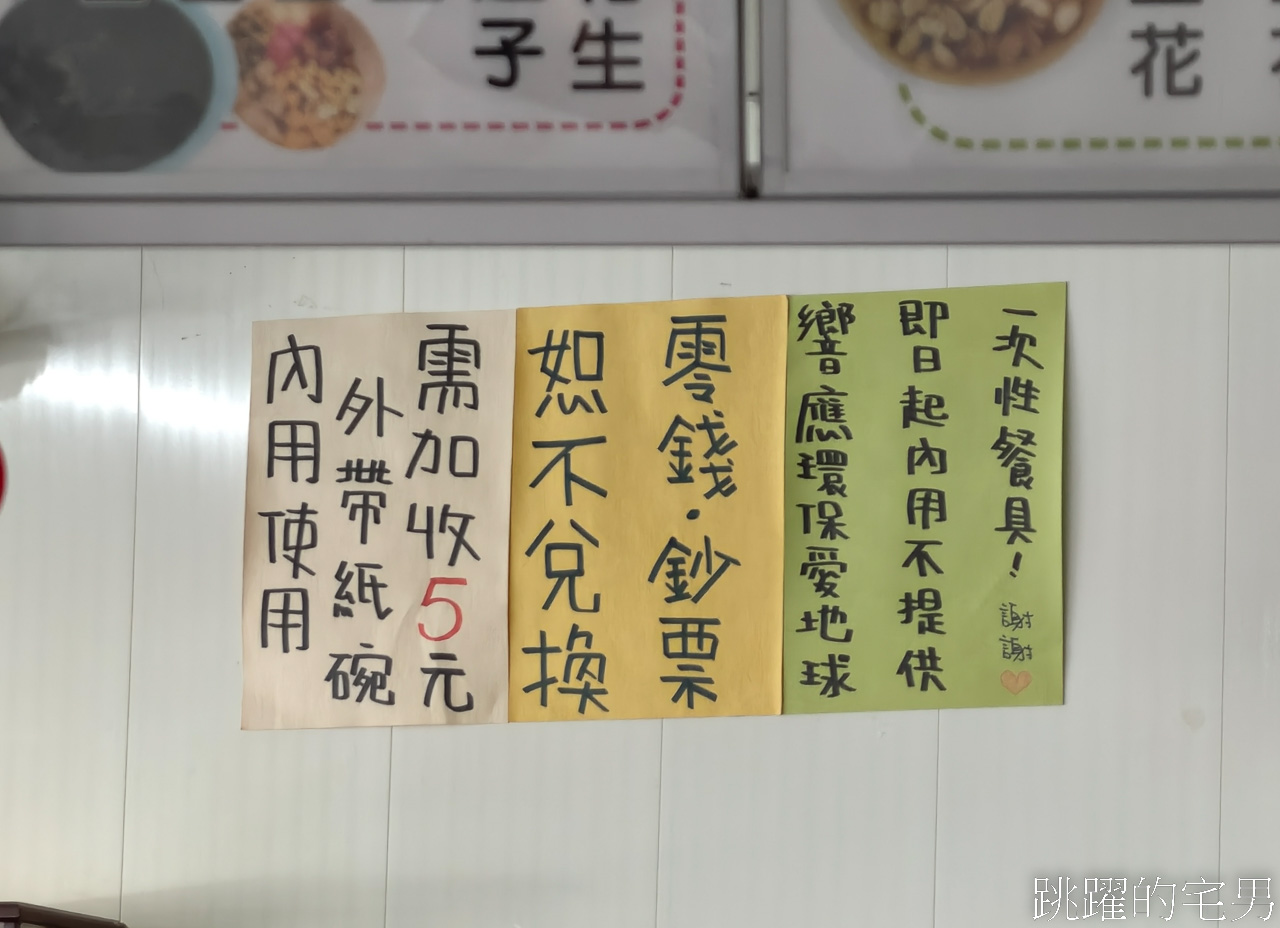 子
生
花
內用使用
外帶紙碗
需加收5元
零錢·鈔票
恕不兌換
響應環保愛地球
即日起內用不提供
一次性餐具！謝謝
跳躍的宅男